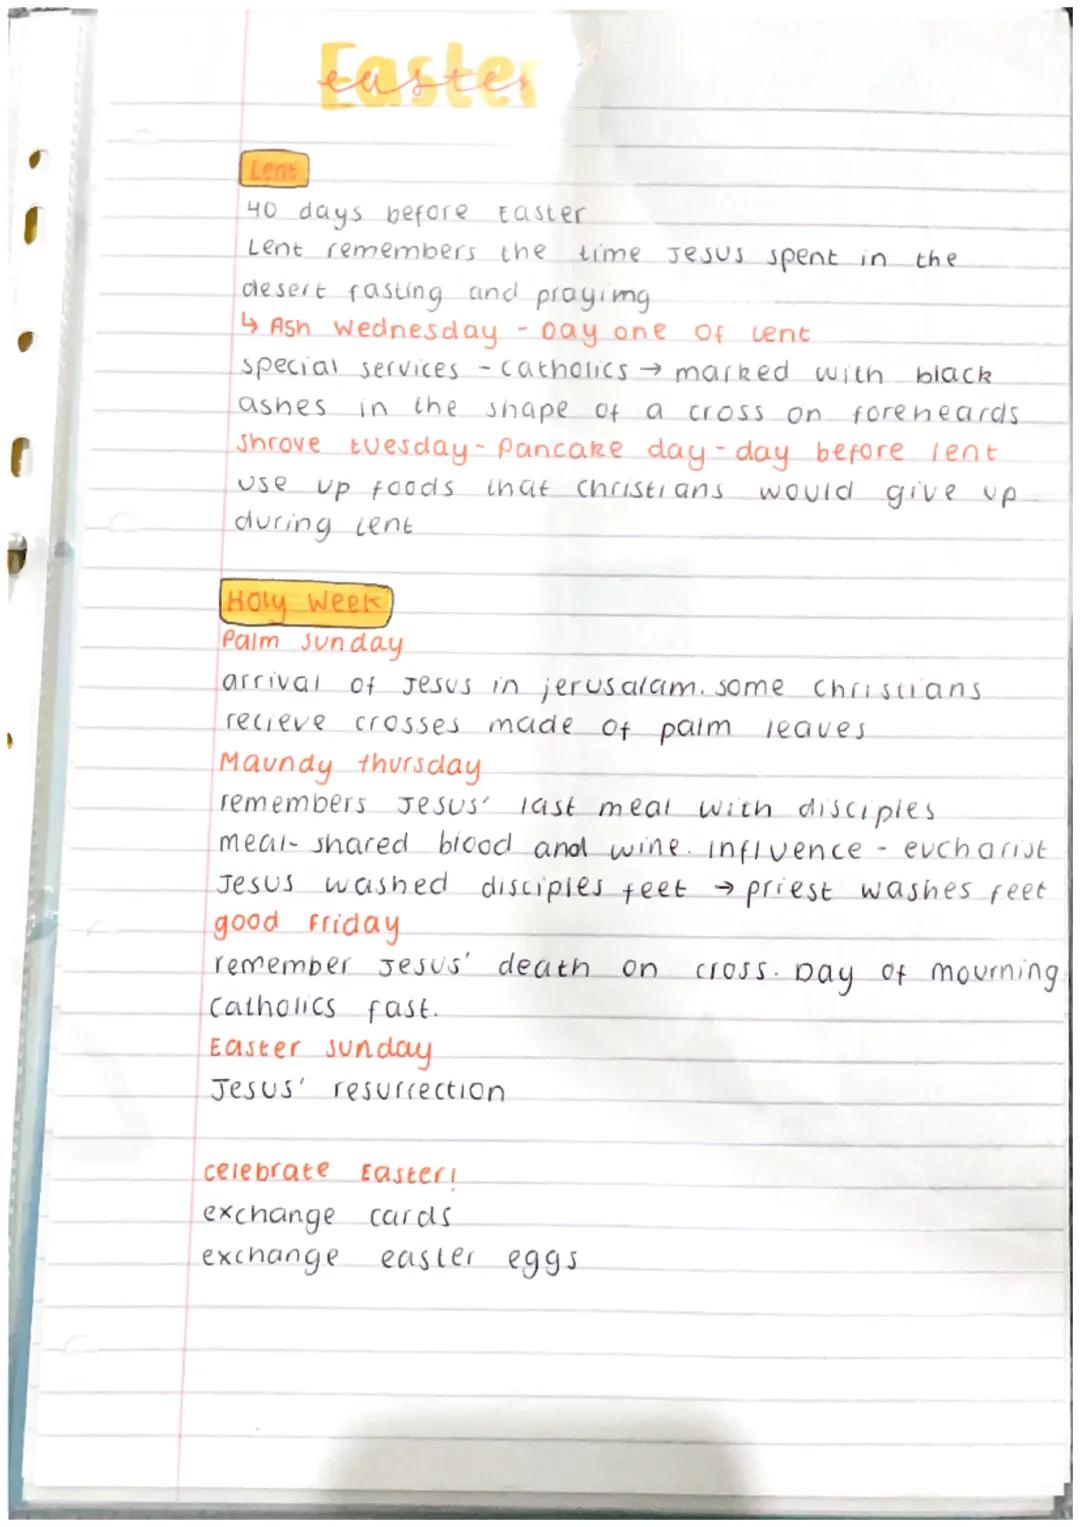 Easter
easter
Lent
40 days before Easter
Lent remembers the time Jesus spent in the
desert fasting and prayimg
↳ Ash Wednesday - Day one of Lent
special services - catholics → marked with black
ashes in the shape of a cross on foreheards
Shrove tuesday - Pancake day - day before lent
use up foods that christians would give up
during Lent
Holy Week
Palm Sunday
arrival of Jesus in jerusalam. some christians
recieve crosses made of palm leaves
Maundy thursday
remembers Jesus' last meal with disciples
meal- shared blood and wine. influence - eucharist
Jesus washed disciples feet → priest washes feet
good Friday
remember Jesus' death on cross. Day of mourning
Catholics fast.
Easter sunday
Jesus' resurrection
celebrate Easter!
exchange cards
exchange easter eggs